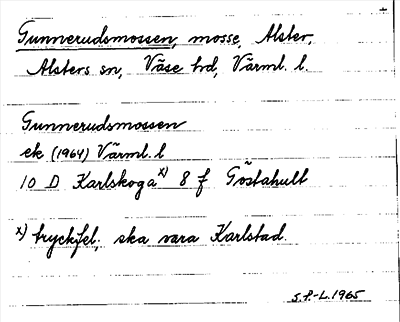 Gunnerudsmossen, mosse, Alster,
Alsters sn, Väse hd, Värml. l.
Gunnerudsmossen
ek (1964) Värml. l
10 D Karlskoga x) 8 f Göstahult
x) tryckfel, ska vara Karlstad.
S.P.-L. 1965